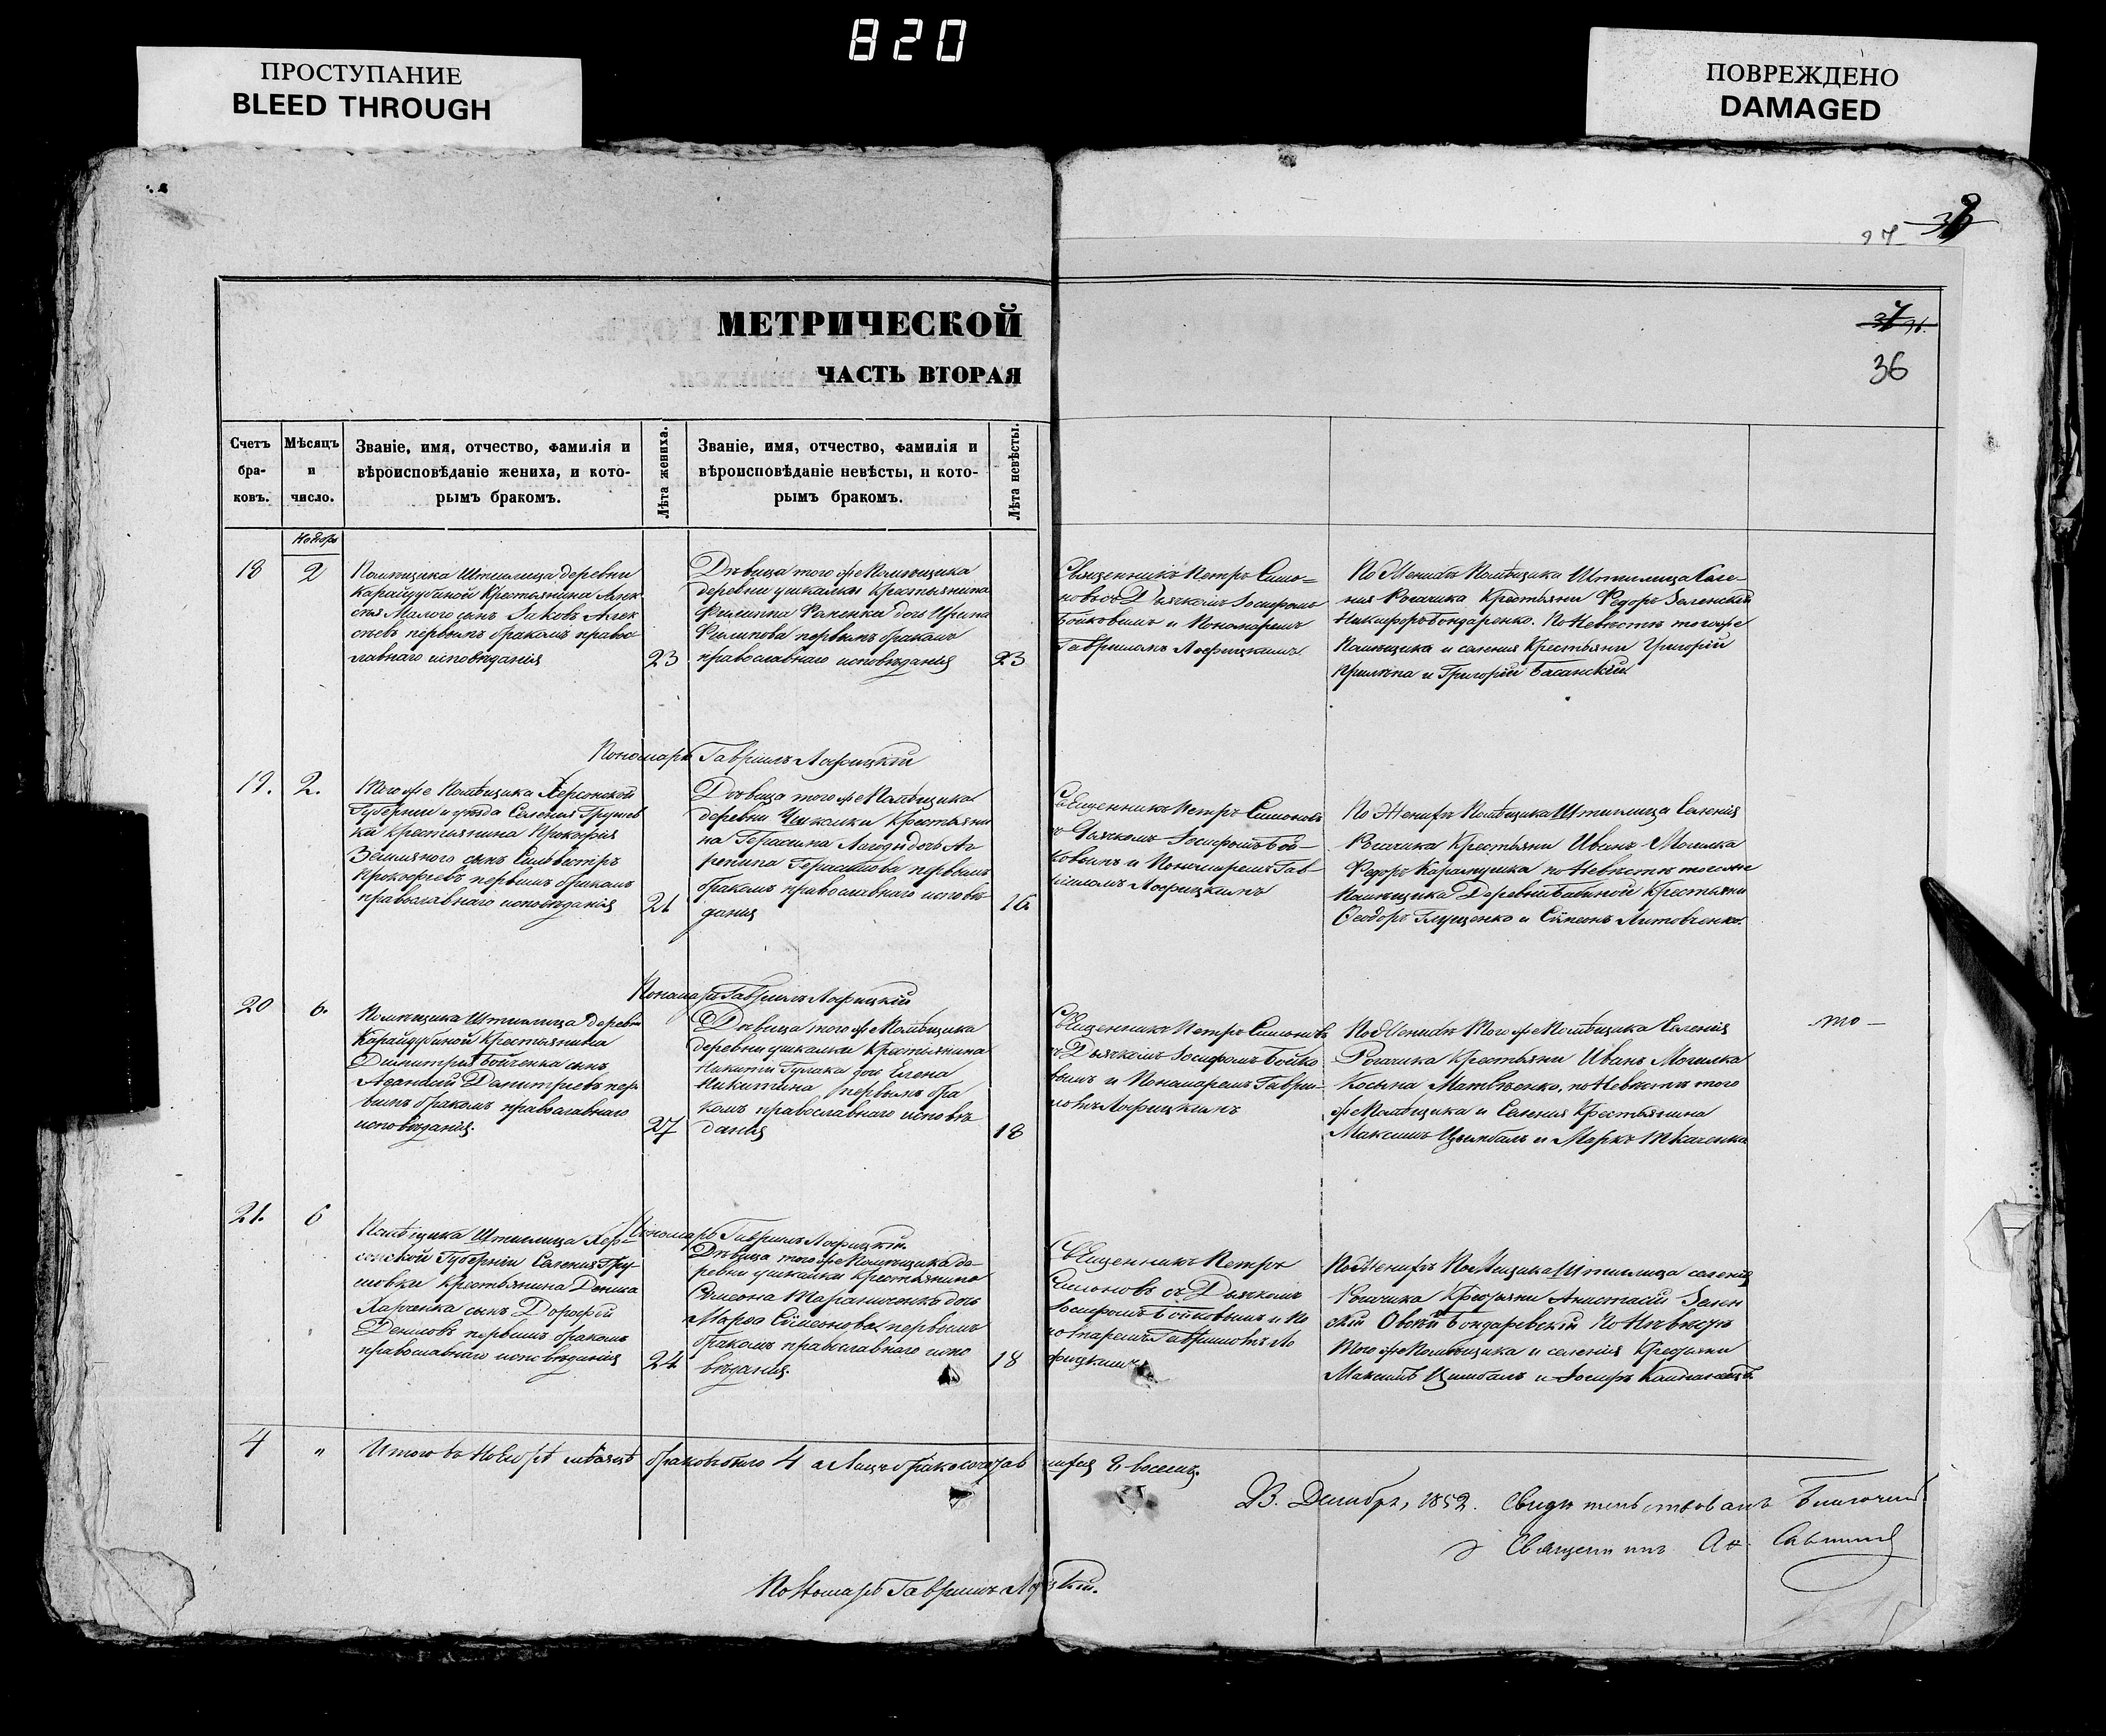 820
ПРОСТУПАНИЕ
BLEED THROUGH
ПОВРЕЖДЕНО
DAMAGED
36
МЕТРИЧЕСКОЙ
ЧАСТЬ ВТОРАЯ
Счетъ бра- ковъ.
Мѣсяцъ и число.
Званіе, имя, отчество, фамилія и
вѣроисповѣданіе жениха, и кото-
рымъ бракомъ.
Лѣта жениха.
Званіе, имя, отчество, фамилія и
вѣроисповѣданіе невѣсты, и кото-
рымъ бракомъ.
Лѣта невѣсты.
Ноября
18
2
Помѣщика Штиглица деревни
Карайдубиной Крестьянина Алек
сѣя Малого сынъ Яковъ Алек
сѣевъ первымъ бракомъ правос
лавнаго исповѣданія
23
Дѣвица того же Помѣщика
деревни Ушкалки Крестьянина
Филиппа дочь Ирина
Филипова первымъ бракомъ
православнаго исповѣданія
23
Священникъ Петръ Симо=
новъ съ Дьячкомъ Іосифомъ
Бойковымъ и Пономаремъ
Гавріиломъ Лофицкимъ
По Женихѣ Помѣщика Штиглица Селе-
нія Рогачика Крестьяни Федоръ Зеленскій
Никифоръ Бондаренко. По Невѣстѣ тогоже
Помѣщика и селенія Крестьяни Григорій
и Григорій Басанскій
Пономарь Гавріилъ Лофицкій
19.
2.
Того же Помѣщика Херсонской
Губерніи и уѣзда Селенія Грушев
ки Крестьянина Прокофія
Земляного сынъ Сильвестръ
Прокофіевъ первымъ бракомъ
православнаго исповѣданія
21
Дѣвица того же Помѣщика
деревни Ушкалки Крестьяни
на Герасима Лагоды дочь Аг
репина Герасимова первымъ
бракомъ православнаго исповѣ
данія
16
Священникъ Петръ Симоновъ
съ Дьячкомъ Іосифомъ Бой-
ковымъ и Пономаремъ Гав-
ріиломъ Лофицкимъ
По Женихѣ Помѣщика Штиглица Селенія
Рогачика Крестьяни Иванъ Могилка
Федоръ по Невѣстѣ тогоже
Помѣщика Деревни Бабиной Крестьяни
Ѳеодоръ Глущенко и Семенъ Литовченко.
Пономарь Гавріилъ Лофицкій
20
6.
Помѣщика Штиглица деревн
Карайдубиной Крестьянина
Димитрія Бойченка сынъ
Афанасій Димитріевъ пер
вымъ бракомъ православнаго
исповѣданія.
27
Дѣвица того же Помѣщика
деревни Ушкалки Крестьянина
Никиты Гулака дочь Елена
Никитина первымъ бра
комъ православнаго исповѣ
данія
18
Священникъ Петръ Симоновъ
съ Дьячкомъ Іосифомъ Бойко
вымъ и Пономаремъ Гаврии-
ломъ Лофицкимъ
По Женихѣ Того же Помѣщика Селенія
Рогачика Крестьяни Иванъ Могилка
Косьма Матвѣенко, по Невѣстѣ того
же Помѣщика и Селенія Крестьянина
Максимъ Цымбалъ и Маркъ Ткаченко
21.
6
Помѣщика Штиглица Хер-
сонской Губерніи Селенія Гру
шовки Крестьянина Дениса
Харченка сынъ Дорофей
Денисовъ первымъ бракомъ
православнаго исповѣданія
24
Пономарь Гавріилъ Лофицкій.
Дѣвица того же Помѣщика де-
ревни Ушкалки Крестьянина
Симеона Тараниченка дочь
Марѳа Симеонова первымъ
бракомъ православнаго испо
вѣданія.
18
Священникъ Петръ
Симоновъ съ Дьячкомъ
Іосифомъ Бойковымъ и По
номаремъ Гавриломъ Ло
фицкимъ
По Женихѣ Помѣщика Штиглица селенія
Рогачика Крестьяни Анистасій Зелен
скій Овсѣй Бондаревскій По Невѣстѣ
Того же Помѣщика и селенія Крестьяни
Максимъ Цымбалъ и Іосифъ
4
"
Итого въ Ноябрѣ мѣсяцѣ браковъ было 4 а Лицъ бракосочетав шихся 8 восемь.
В. Декабрь, 1852. Свидѣтельствовалъ Благочинн
Священникъ
Пономарь Гавріилъ